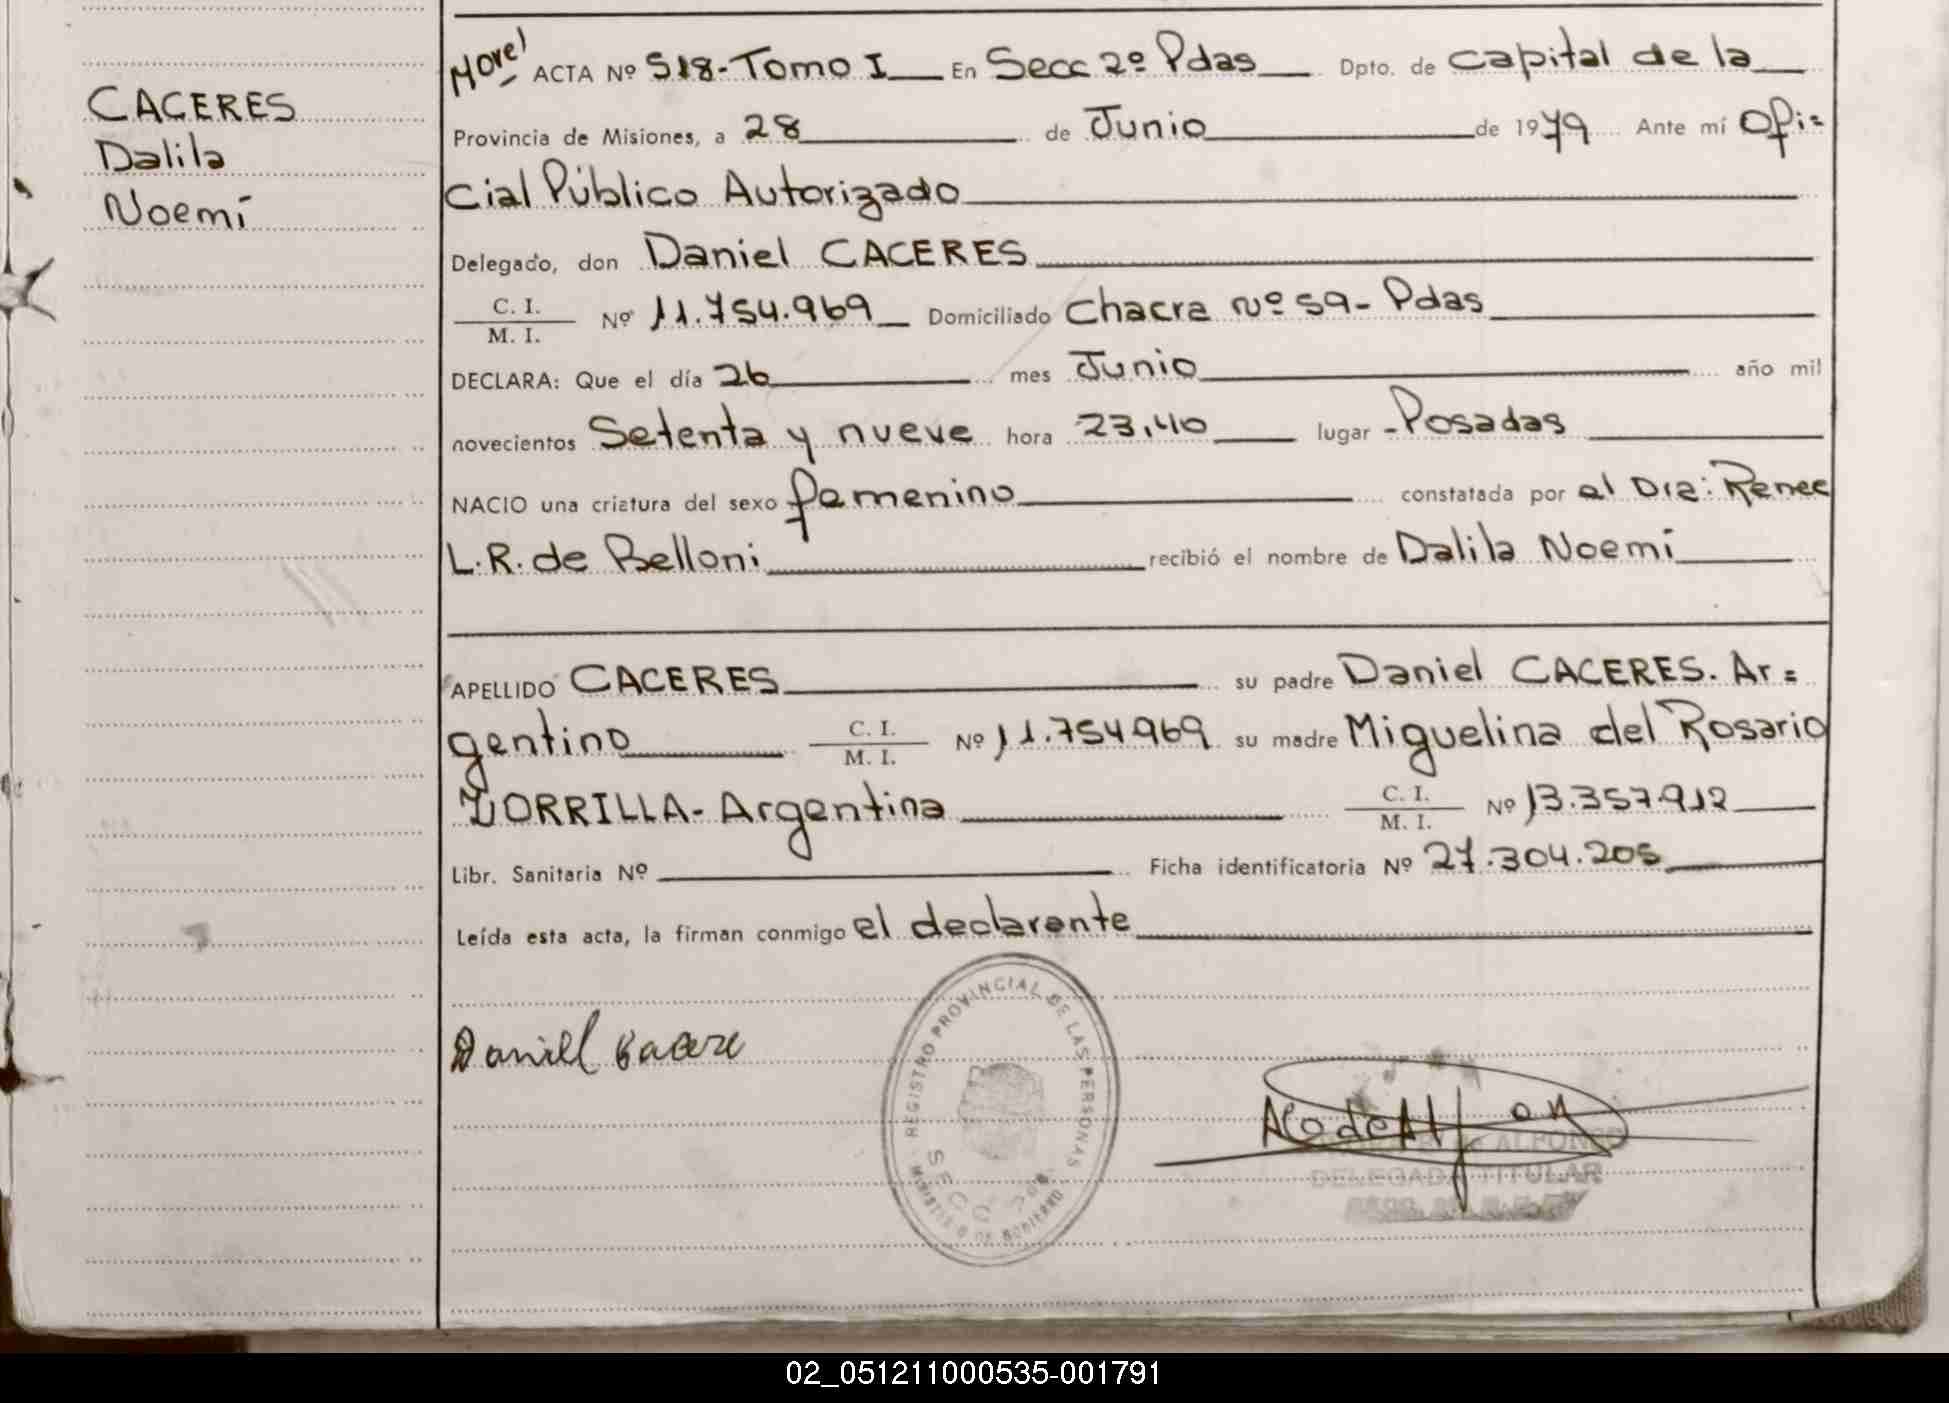 CACERES
Dalila
Noemí
Morel ACTA Nº 518-Tomo I En Secc 2º Pdas Dpto. de Capital de la
Provincia de Misiones, a 28 de Junio de 1979 Ante mí Ofi=
cial Público Autorizado
Delegado, don Daniel CACERES
C. I.
M. I. Nº 11.754.969 Domiciliado Chacra nº 59- Pdas
DECLARA: Que el día 26 mes Junio año mil
novecientos Setenta y nueve hora 23,40 lugar -Posadas
NACIO una criatura del sexo femenino constatada por el Dra: Renee
L.R. de Belloni recibió el nombre de Dalila Noemí
APELLIDO CACERES su padre Daniel CACERES. Ar=
gentino C. I.
M. I. Nº 11.754.969 su madre Miguelina del Rosario
ZORRILLA- Argentina C. I.
M. I. Nº 13.357.912
Libr. Sanitaria Nº Ficha identificatoria Nº 27.304.205
Leída esta acta, la firman conmigo el declarante
REGISTRO PROVINCIAL DE LAS PERSONAS
MINISTERIO DE GOBIERNO
SECC.
Daniel Cacere
de ALFONSO
DELEGADA TITULAR
02_051211000535-001791